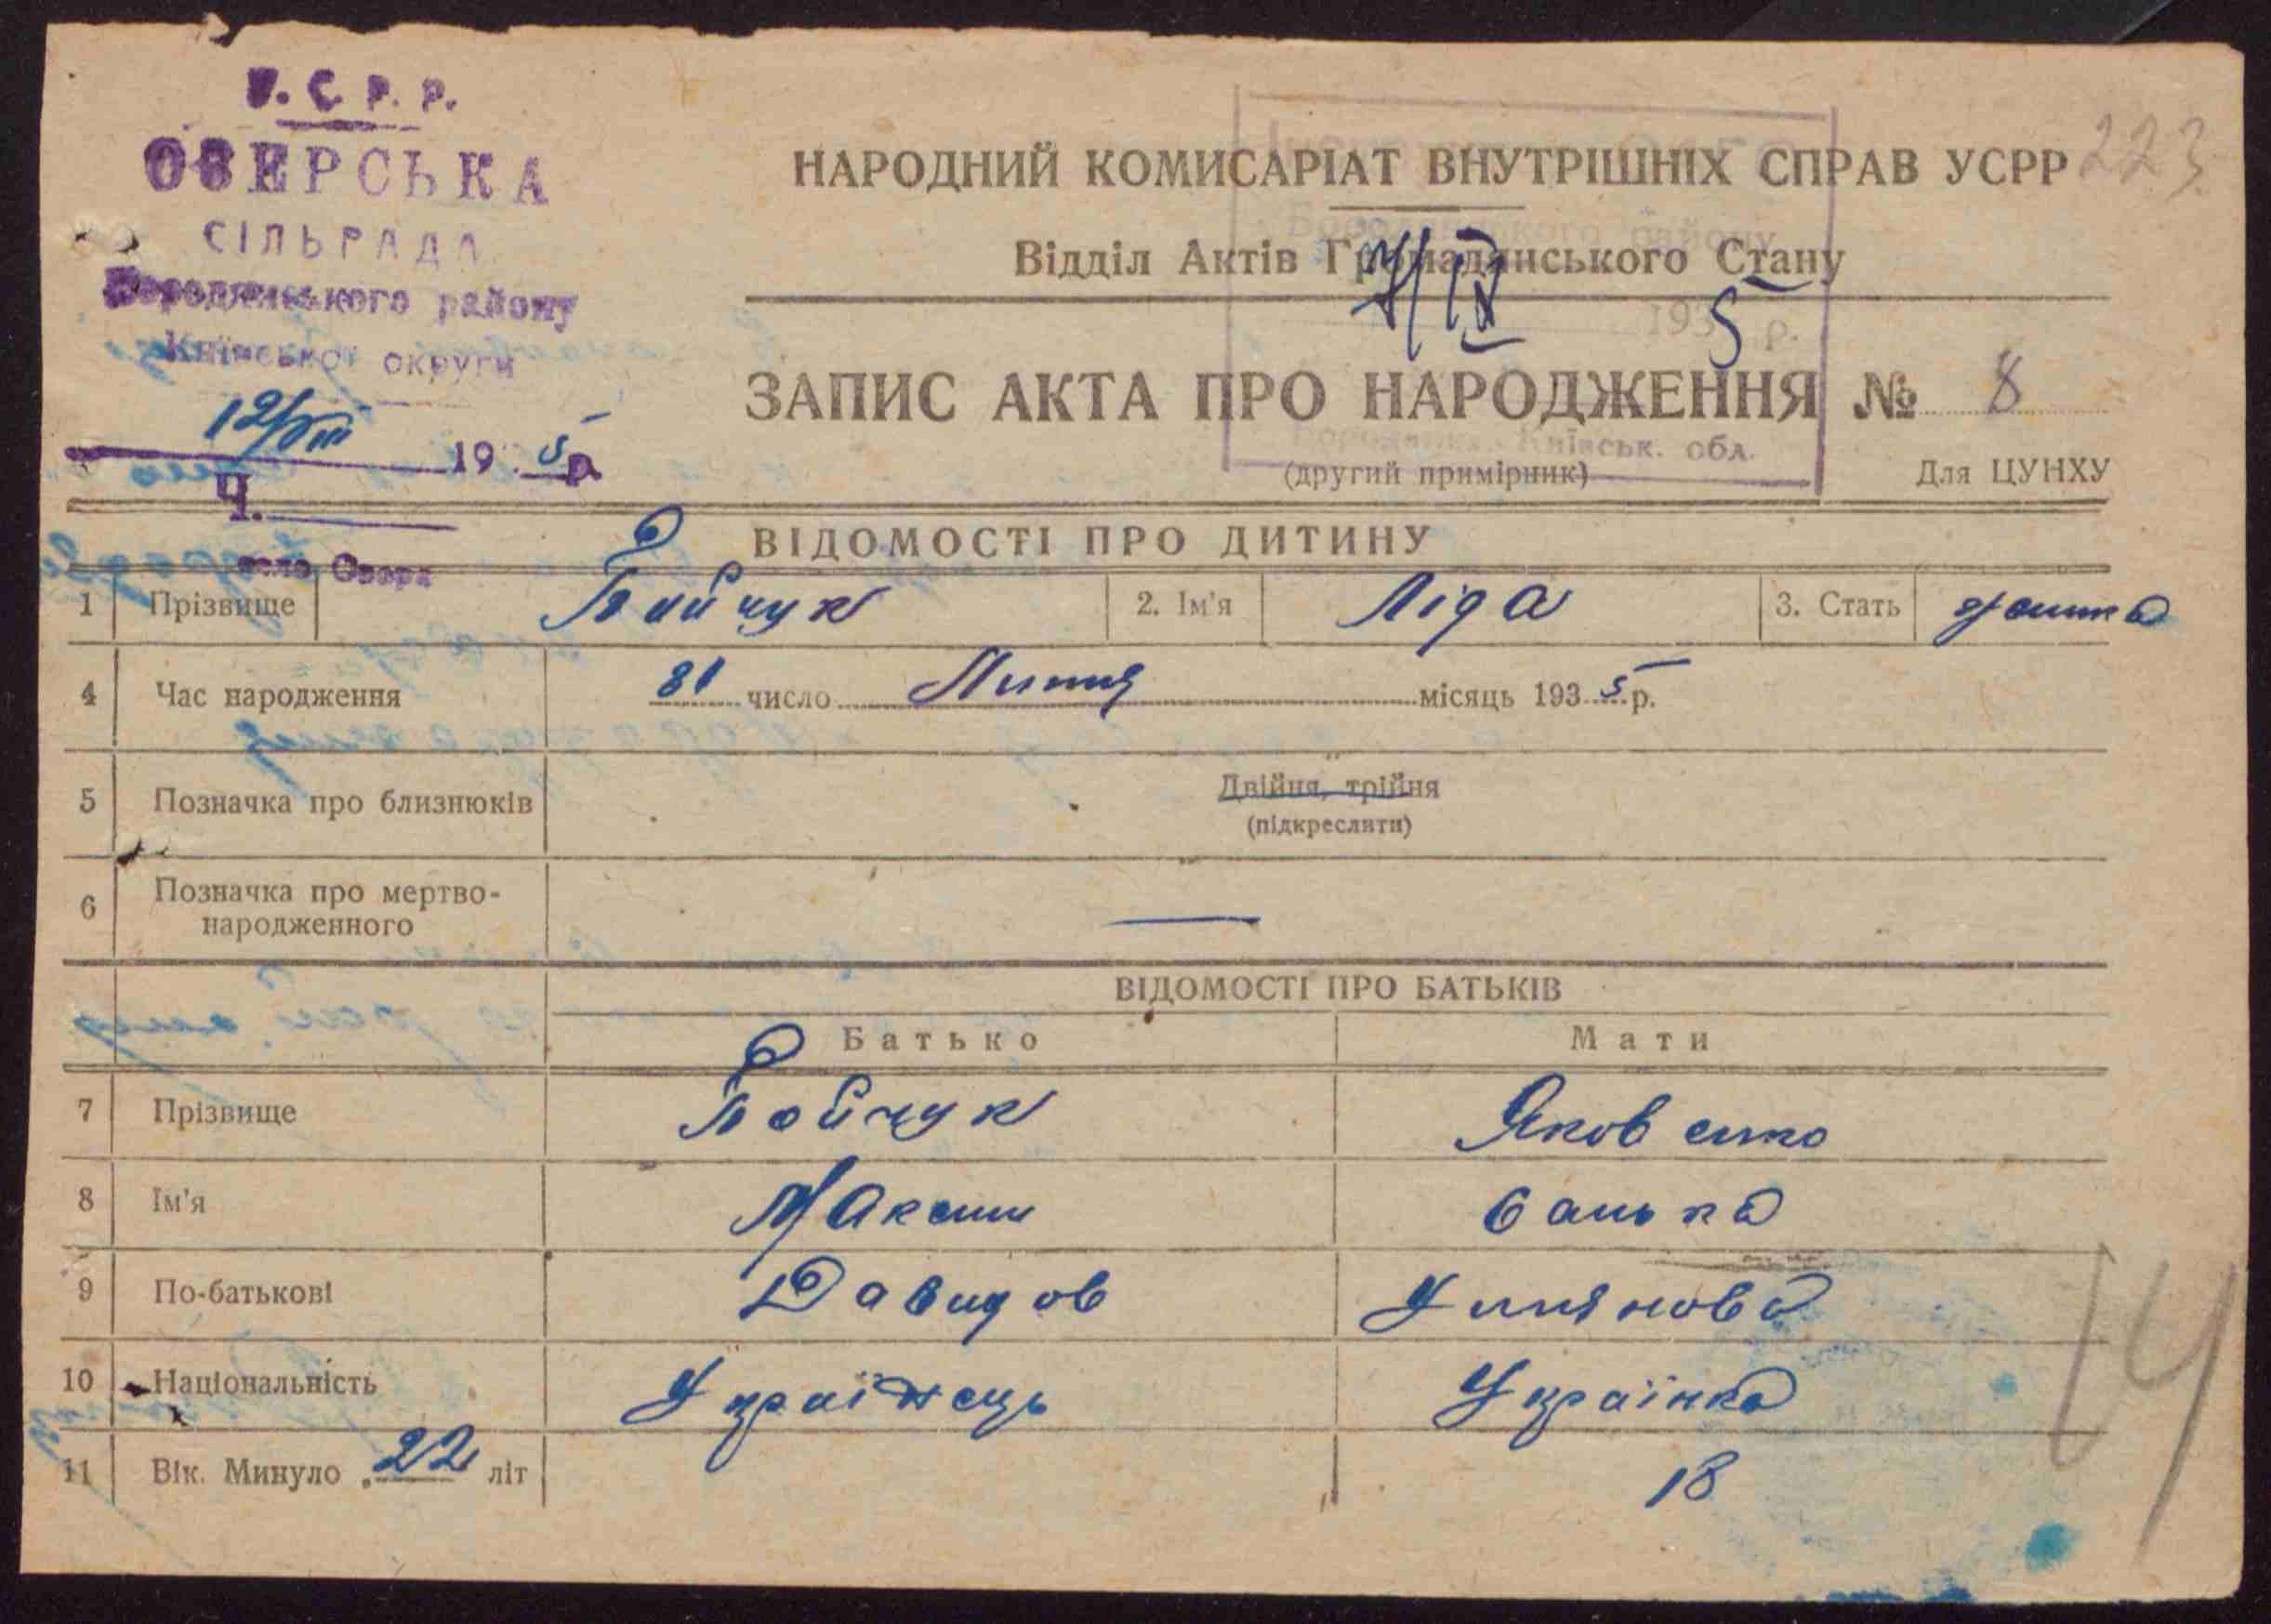 У.С.Р.Р.
ОЗЕРСЬКА
СІЛЬРАДА
Бородянського району
Київської округи
12/VIII 1935 р.
Ч.
село Озера
223
НАРОДНИЙ КОМИСАРІАТ ВНУТРІШНІХ СПРАВ УСРР
Відділ Актів Громадянського Стану
району
1935 р.
ЗАПИС АКТА ПРО НАРОДЖЕННЯ № 8
Київськ. обл.
(другий примірник) Для ЦУНХУ
ВІДОМОСТІ ПРО ДИТИНУ
1 Прізвище Бойчук 2. Ім'я Ліда 3. Стать
4 Час народження 31 число Липня місяць 1935 р.
5 Позначка про близнюків Двійня, трійня
(підкреслити)
6 Позначка про мертво-
народженного —
ВІДОМОСТІ ПРО БАТЬКІВ
Батько Мати
7 Прізвище Бойчук Яковенко
8 Ім'я Максим Ганька
9 По-батькові Давидов Улянова
10 Національність Українець Українка
11 Вік. Минуло 22 літ 18
14